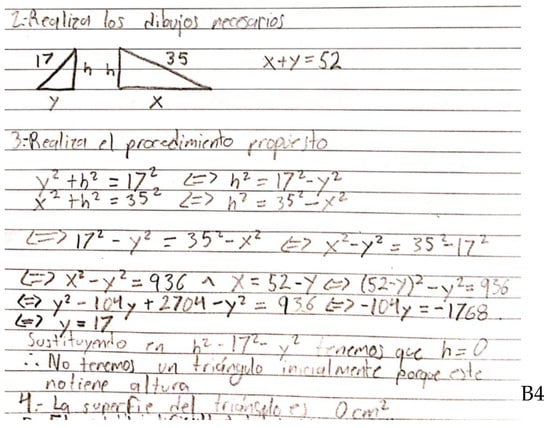 2.- Realiza los dibujos necesarios
17 h h 35 x+y=52
y x
3.- Realiza el procedimiento propuesto
y² + h² = 17² <=> h² = 17² - y²
x² + h² = 35² <=> h² = 35² - x²
<=> 17² - y² = 35² - x² <=> x² - y² = 35² - 17²
<=> x² - y² = 936 ^ x = 52 - y <=> (52-y)² - y² = 936
<=> y² - 104y + 2704 - y² = 936 <=> -104y = -1768
<=> y = 17
Sustituyendo en h² - 17² - y² tenemos que h = 0
∴ No tenemos un triángulo inicialmente porque este
no tiene altura
B4
4.- La superfie del triángulo es 0 cm²